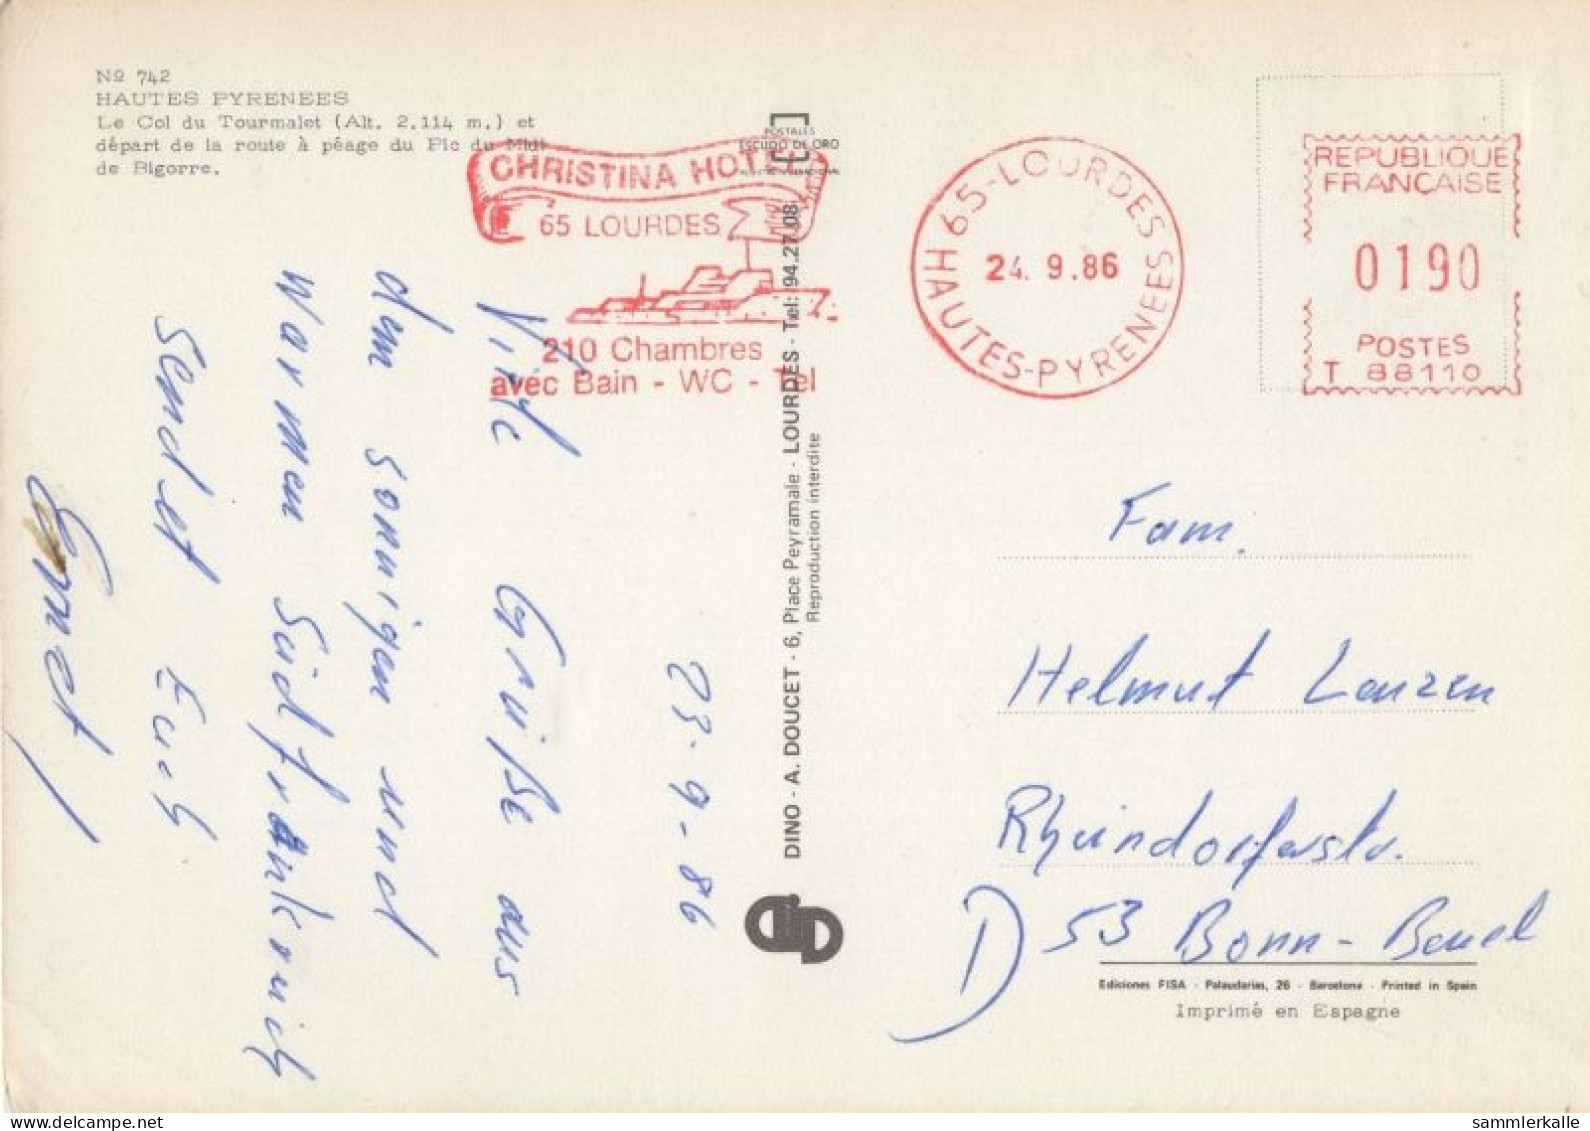 Nº 742
HAUTES PYRENEES
Le Col du Tourmalet (Alt. 2.114 m.) et
départ de la route à péage du Pic du Midi
de Bigorre.
CHRISTINA HOTEL
65 LOURDES
210 Chambres
avec Bain - WC - Tel
POSTALES
ESCUDO DE ORO
65-LOURDES
HAUTES-PYRENEES
24. 9.86
REPUBLIQUE
FRANÇAISE
0190
POSTES
T 88110
23.9.86
Viele Grüße aus
dem sonnigen und
warmen Südfrankreich
sendet Euch
DINO - A. DOUCET - 6, Place Peyramale - LOURDES - Tel: 94.27.08
Reproduction interdite
Fam.
Helmut
Rheindorferstr.
D 53 Bonn-Beuel
Ediciones FISA - Palaudarias, 26 - Barcelona - Printed in Spain
Imprimé en Espagne
sammlerkalle